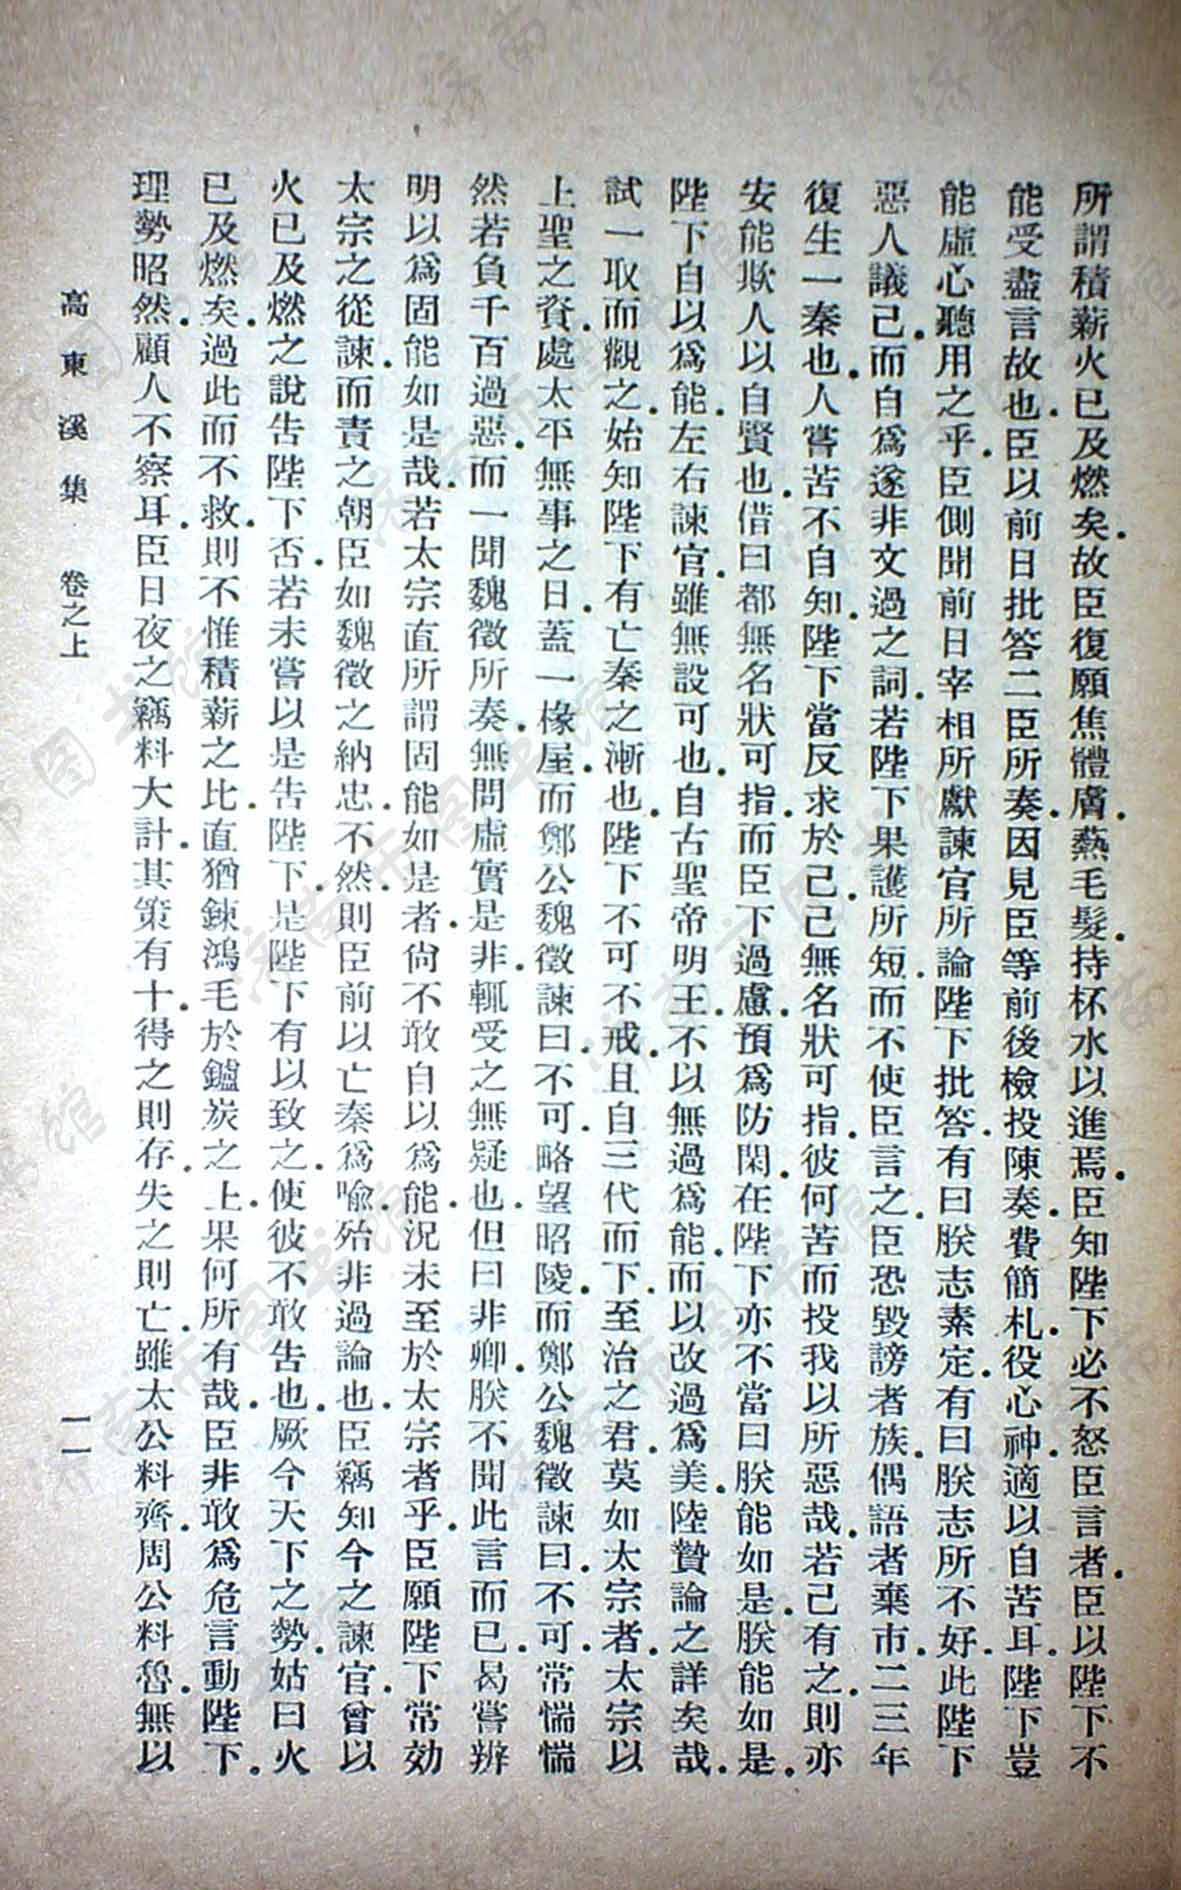 所謂積薪火已及燃矣故臣復願焦體膚熱毛髮持杯水以進焉臣知陛下必不怒臣言者臣以陛下不
能受盡言故也臣以前日批答二臣所奏因見臣等前後檢投陳奏費簡札役心神適以自苦耳陛下豈
能虛心聽用之乎臣側聞前日宰相所獻諫官所論陛下批答有曰朕志素定有曰朕志所不好此陛下
惡人議己而自爲遂非文過之詞若陛下果護所短而不使臣言之臣恐毀謗者族偶語者棄市二三年
復生一秦也人嘗苦不自知陛下當反求於己己無名狀可指彼何苦而投我以所惡哉若己有之則亦
安能欺人以自賢也借曰都無名狀可指而臣下過慮預爲防閑在陛下亦不當曰朕能如是朕能如是
陛下自以爲能左右諫官雖無設可也自古聖帝明王不以無過爲能而以改過爲美陸贄論之詳矣哉
試一取而觀之始知陛下有亡秦之漸也陛下不可不戒且自三代而下至治之君莫如太宗者太宗以
上聖之資處太平無事之日蓋一椽屋而鄭公魏徵諫曰不可略望昭陵而鄭公魏徵諫曰不可常惴惴
然若負千百過惡而一聞魏徵所奏無問虛實是非輒受之無疑也但曰非卿朕不聞此言而已曷嘗辨
明以爲固能如是哉若太宗直所謂固能如是者尙不敢自以爲能況未至於太宗者乎臣願陛下常効
太宗之從諫而責之朝臣如魏徵之納忠不然則臣前以亡秦爲喻殆非過論也臣竊知今之諫官曾以
火已及燃之說告陛下否若未嘗以是告陛下是陛下有以致之使彼不敢告也厥今天下之勢姑曰火
已及燃矣過此而不救則不惟積薪之比直猶鍊鴻毛於鑪炭之上果何所有哉臣非敢爲危言動陛下
理勢昭然顧人不察耳臣日夜之竊料大計其策有十得之則存失之則亡雖太公料齊周公料魯無以
高東溪集 卷之上 一一